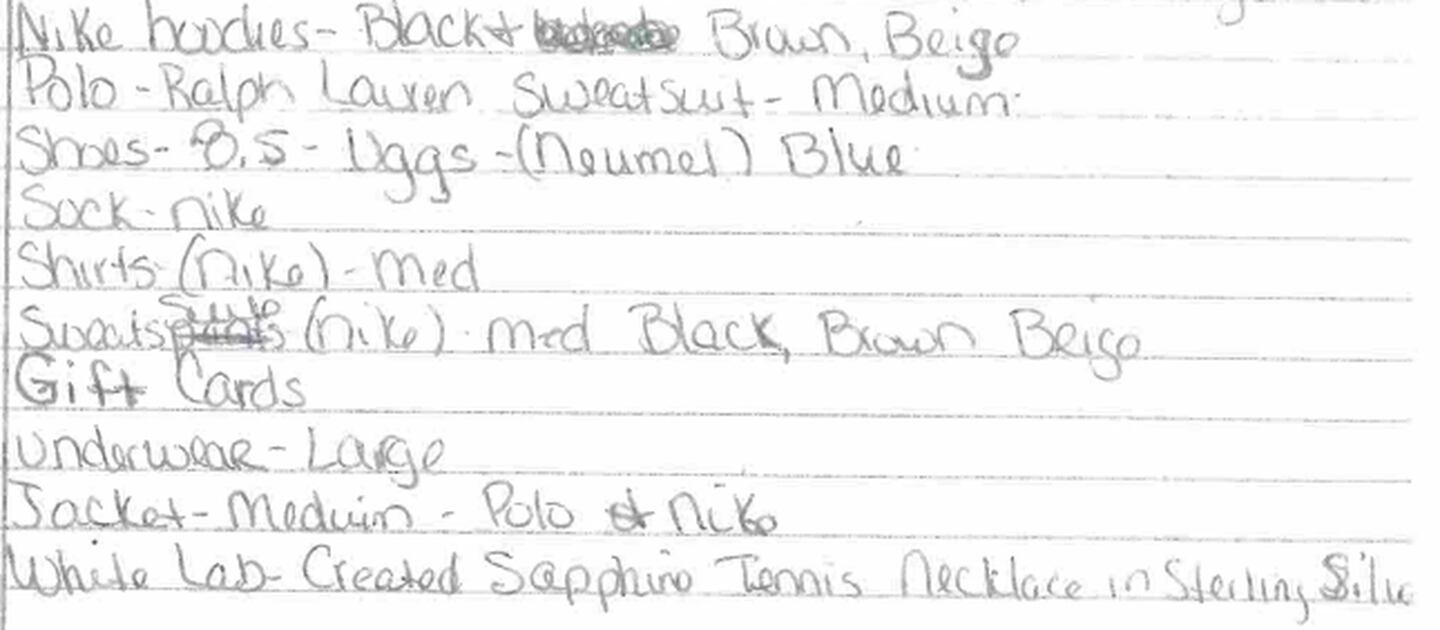 Nike hoodies- Black + Brown, Beige
Polo - Ralph Lauren Sweatsuit - Medium
Shoes- 8.5 - Uggs - (Neumel) Blue
Sock - nike
Shirts (nike) - Med
Sweatssuits (nike) - med Black, Brown Beige
Gift Cards
Underwear - Large
Jacket - Meduim - Polo + nike
White Lab-Created Sapphire Tennis Necklace in Sterling Silv